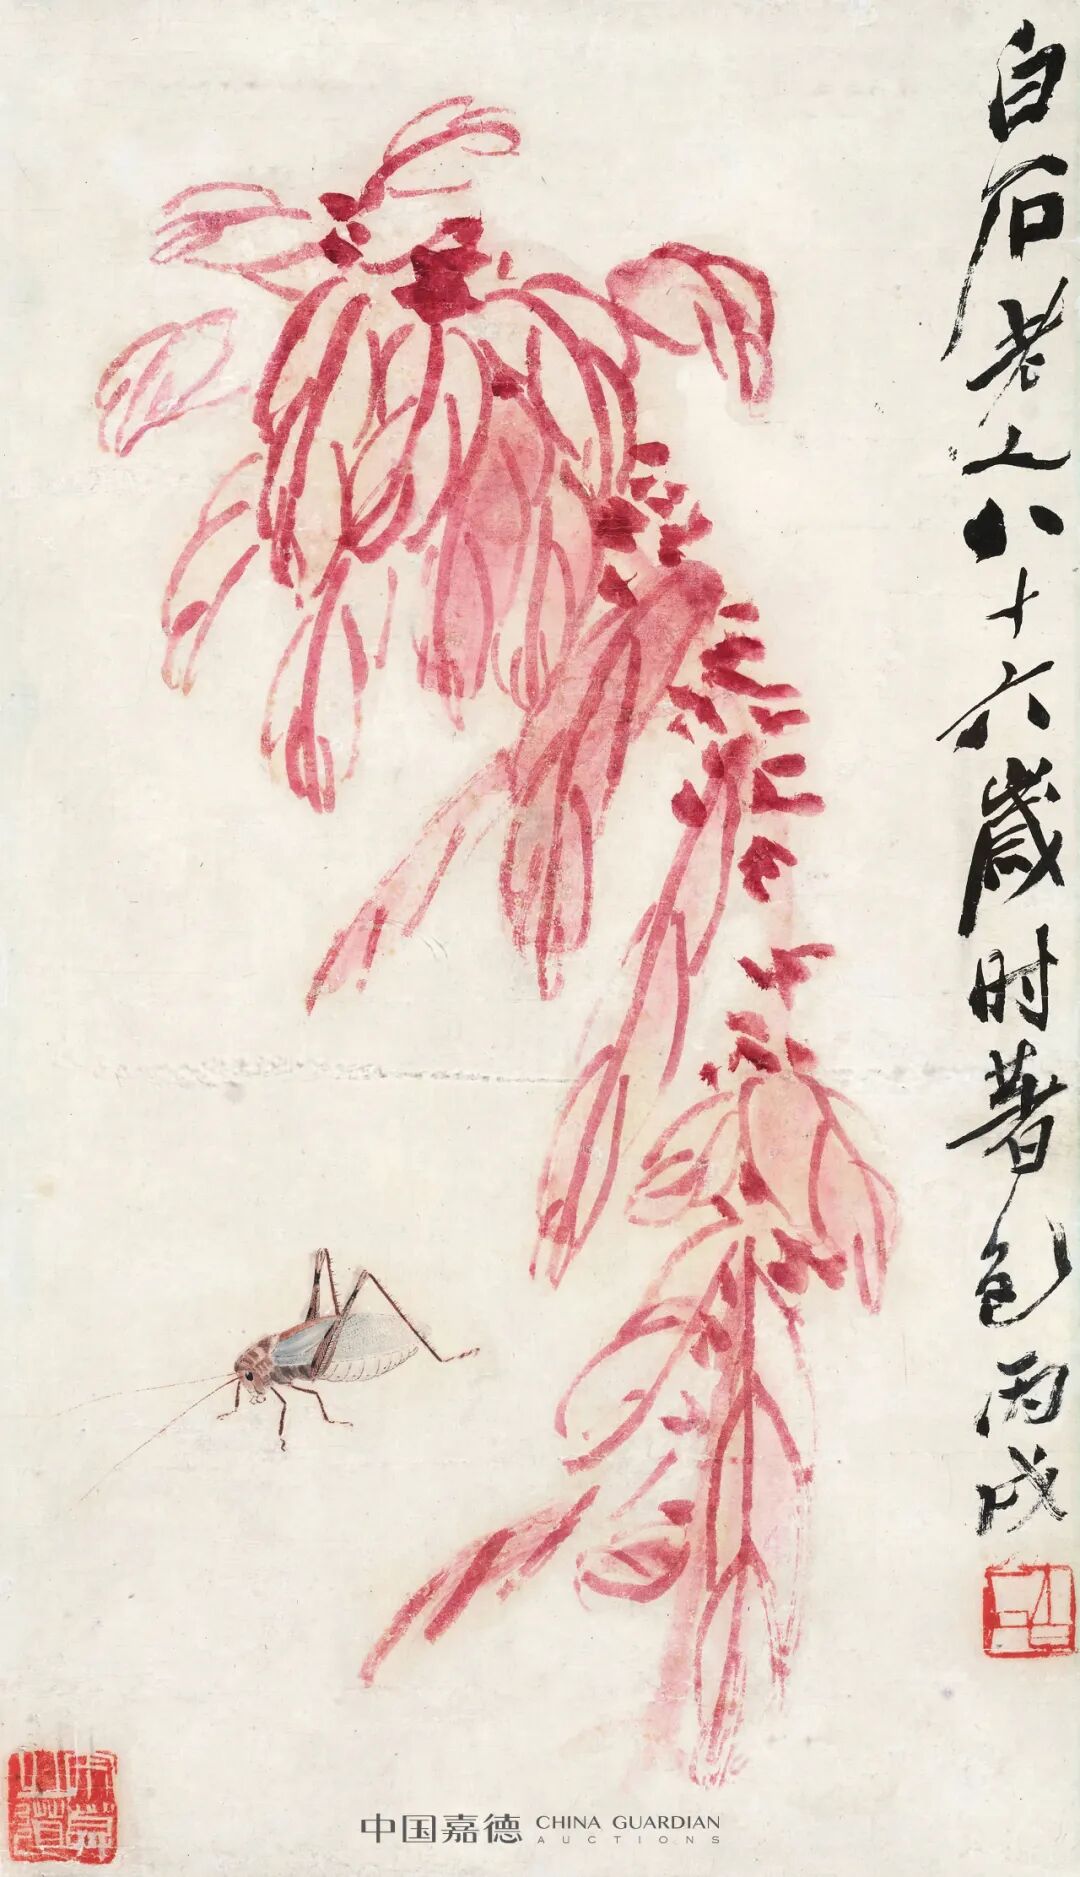 白石老人八十六歲时著色丙戌
中国嘉德 CHINA GUARDIAN
AUCTIONS